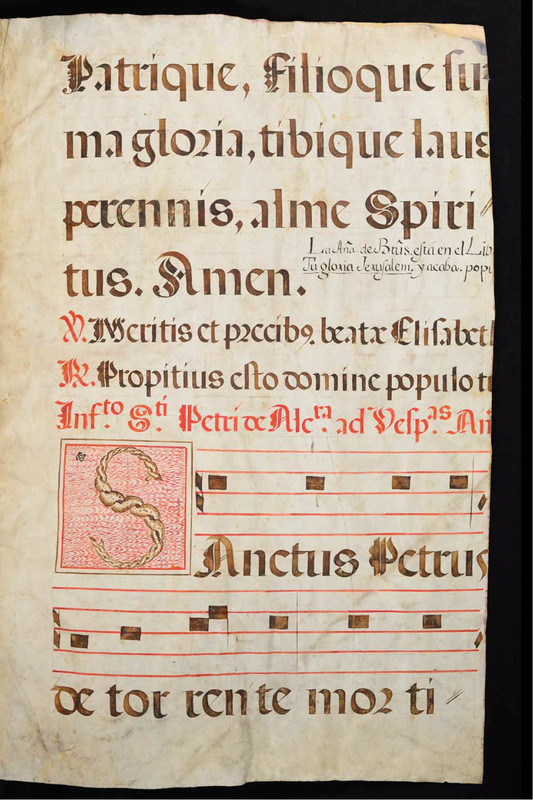 Patrique, Filioque su
ma gloria, tibique laus
perennis, alme Spiri
tus. Amen.
La Aña. de Btus, esta en el Lib
Tu gloria Jerusalem, y acaba. popu
V. Meritis et precib9. beatæ Elisabeth
R. Propitius esto domine populo tu
In f.to S.ti Petri de Alc.ra ad Vesp.as Añ
SAnctus Petrus
de tor rente mor ti